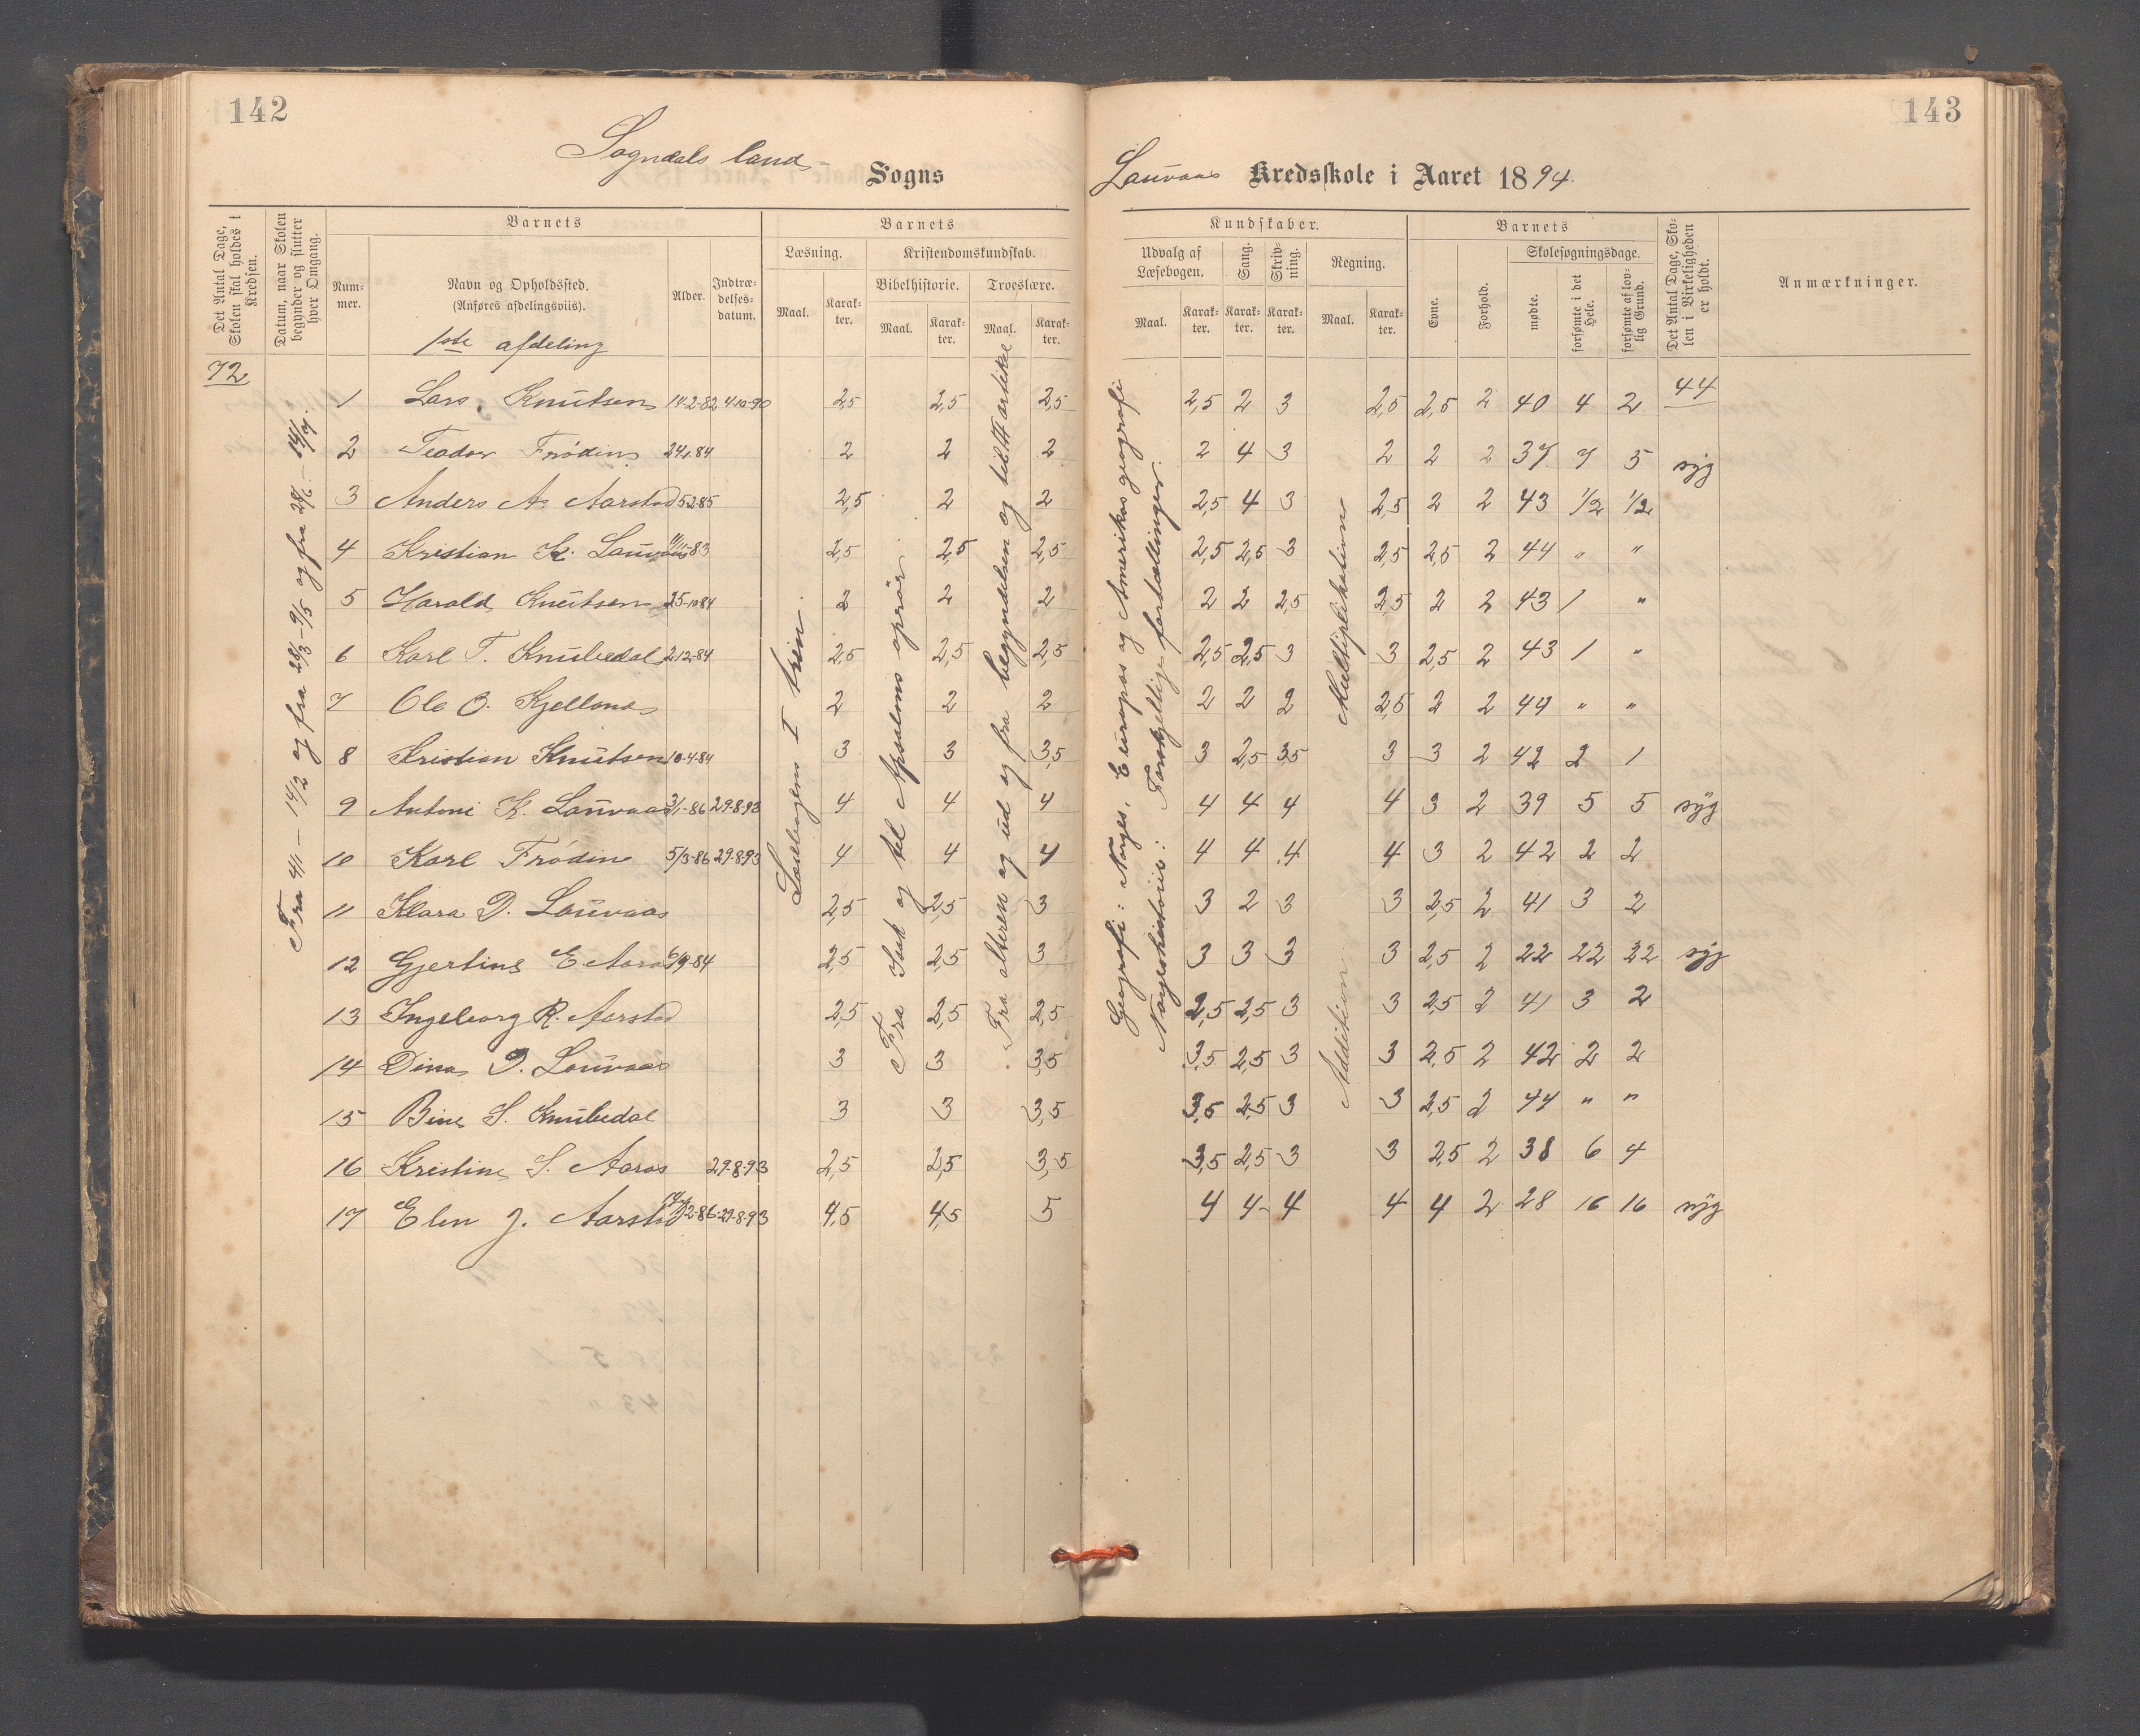 142
Sogndals land-
Sogns
Det Antal Dage, Skolen skal holdes i Kredsen.
Datum, naar Skolen begynder og slutter hver Omgang.
Barnets
Num-mer.
Navn og Opholdssted.
(Anføres afdelingsviis).
1ste afdeling
Alder.
Indtræ-delses-datum.
Barnets
Læsning.
Kristendomskundskab.
Bibelhistorie.
Troeslære.
Maal.
Karak-ter.
Maal.
Karak-ter.
Maal.
Karak-ter.
72
1 Lars Knutsen 14-2-82 4-10-90 2,5 2,5 2,5
2 Teodor Frødin 24/1.84 2 2 2
3 Anders A. Aarstad 5-2-85 2,5 2 2
4 Kristian K. Lauvaas 83 2,5 2,5 2,5
5 Harald Knutsen 25-10 84 2 2 2
6 Karl T. Knubedal 2-12-84 2,5 2,5 2,5
7 Ole O. Kjellona 2 2 2
8 Kristian Knutsen 10-4-84 3 3 3,5
9 Antoni K. Lauvaas 3/1-86 29-8-93 4 4 4
10 Karl Frødin 5/3-86 29-8-93 4 4 4
11 Klara D. Lauvaas 2,5 2,5 3
12 Gjertine E Aaros 6/9-84 2,5 2,5 3
13 Ingeborg R. Aarstad 2,5 2,5 2,5
14 Dina D. Lauvaas 3 3 3,5
15 Bine S. Knubedal 3 3 3,5
16 Kristine S. Aaros 29-8-93 2,5 2,5 3,5
17 Elen J. Aarstad 2-86 29-8-93 4,5 4,5 5
Fra 4/1 — 14/2 og fra 28/3 - 9/5 og fra 28/6 -
Læsebogens I trin.
Fra Saul og til Apsalons oprør.
Fra Alteren og ud og fra begyndelsen og til artikel
143
Lauvaas Kredsskole i Aaret 1894.
Kundskaber.
Udvalg af Læsebogen.
Sang.
Skriv-ning.
Regning.
Maal.
Karak-ter.
Karak-ter.
Karak-ter.
Maal.
Karak-ter.
Barnets
Evne.
Forhold.
Skolesøgningsdage.
mødte.
forsømte i det Hele.
forsømte af lov-lig Grund.
Det Antal Dage, Sko-len i Virkeligheden er holdt.
Anmærkninger.
2,5 2 3 2,5 2,5 2 40 4 2 44
2 4 3 2 2 2 37 7 5 syg
2,5 4 3 2,5 2 2 43 1/2 1/2
2,5 2,5 3 2,5 2,5 2 44 " "
2 2 2,5 2,5 2 2 43 1 "
2,5 2,5 3 3 2,5 2 43 1 "
2 2 2 2,5 2 2 44 " "
3 2,5 3,5 3 3 2 42 2 1
4 4 4 4 3 2 39 5 5 syg
4 4 4 4 3 2 42 2 2
3 2 3 3 2,5 2 41 3 2
3 3 3 3 2,5 2 22 22 22 syg
2,5 2,5 3 3 2,5 2 41 3 2
3,5 2,5 3 3 2,5 2 42 2 2
3,5 2,5 3 3 2,5 2 44 " "
3,5 2,5 3 3 2,5 2 38 6 4
4 4 4 4 4 2 28 16 16 syg
Geografi: Norges, Europas og Amerikas geografi
Norgeshistorie: Forskjellige fortællinger.
Multiplikation
Addition